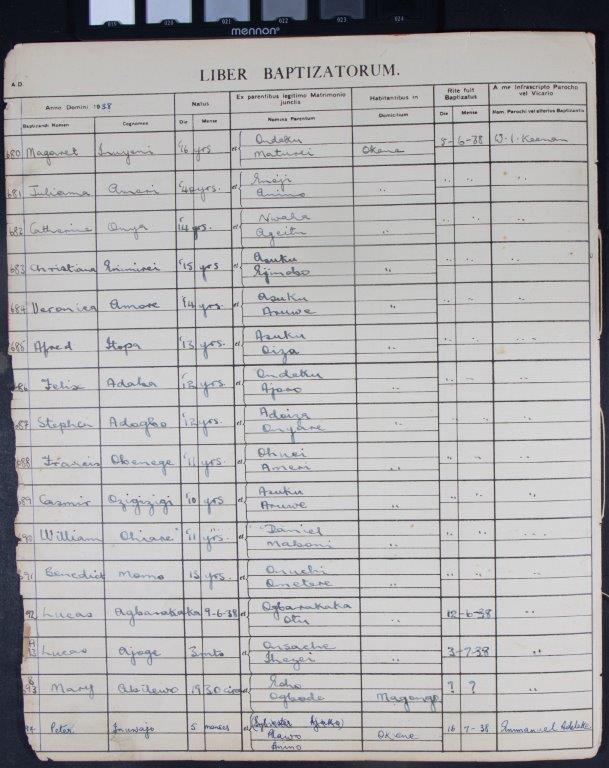 019 020 021 022 023 024
mennon
LIBER BAPTIZATORUM.
A.D.
Anno Domini 1938 Natus Ex parentibus legitimo Matrimonio junctis Habitantibus in Rite fuit Baptizatus A me Infrascripto Parocho vel Vicario
Baptizandi Nomen Cognomen Die Mense Nomina Parentum Domicilium Die Mense Nom. Parochi vel alterius Baptizantis
680 Magaret 16 yrs et Ondeku Maturei Okene 5-6-38 W. J. Keenan
681 Juliama Ameri 40 yrs. et Eneji Anino " " " "
682 Catherine Onya 14 yrs. et Nwaha Ageitu " " " "
683 Christiana Enimirei 15 yrs et Asuku Ejinobo " " " "
684 Veronica Amore 14 yrs. et Asuku Aruwe " " " "
685 Afred Itopa 13 yrs. et Asuku Oiza " " " "
686 Felix Adaba 12 yrs. et Ondeku Ajoro " " " "
687 Stephen Adogbo 12 yrs. et Adoiza Onyare " " " "
688 Francis Obenege 11 yrs. et Ohuei Ameri " " " "
689 Casmir Ozigizigi 10 yrs et Asuku Aruwe " " " "
690 William Ohiare 11 yrs. et Daniel Maboni " " " "
691 Benedict Momo 13 yrs. et Onuchi Onetere " " " "
92 Lucas Agbarakaka 9-6-38 et Ogbarakaka Otu " 12-6-38 "
93 Lucas Ajoge 3 mts et Onsache Iheyei " 3-7-38 "
93 Mary Abilewo 1930 circa et Edo Ogbode Magongo ? ?
94 Peter Inuwajo 5 et (Sylvester Ajaka) Alawo Anino Okene 16 7-38 Emmanuel Adeleke